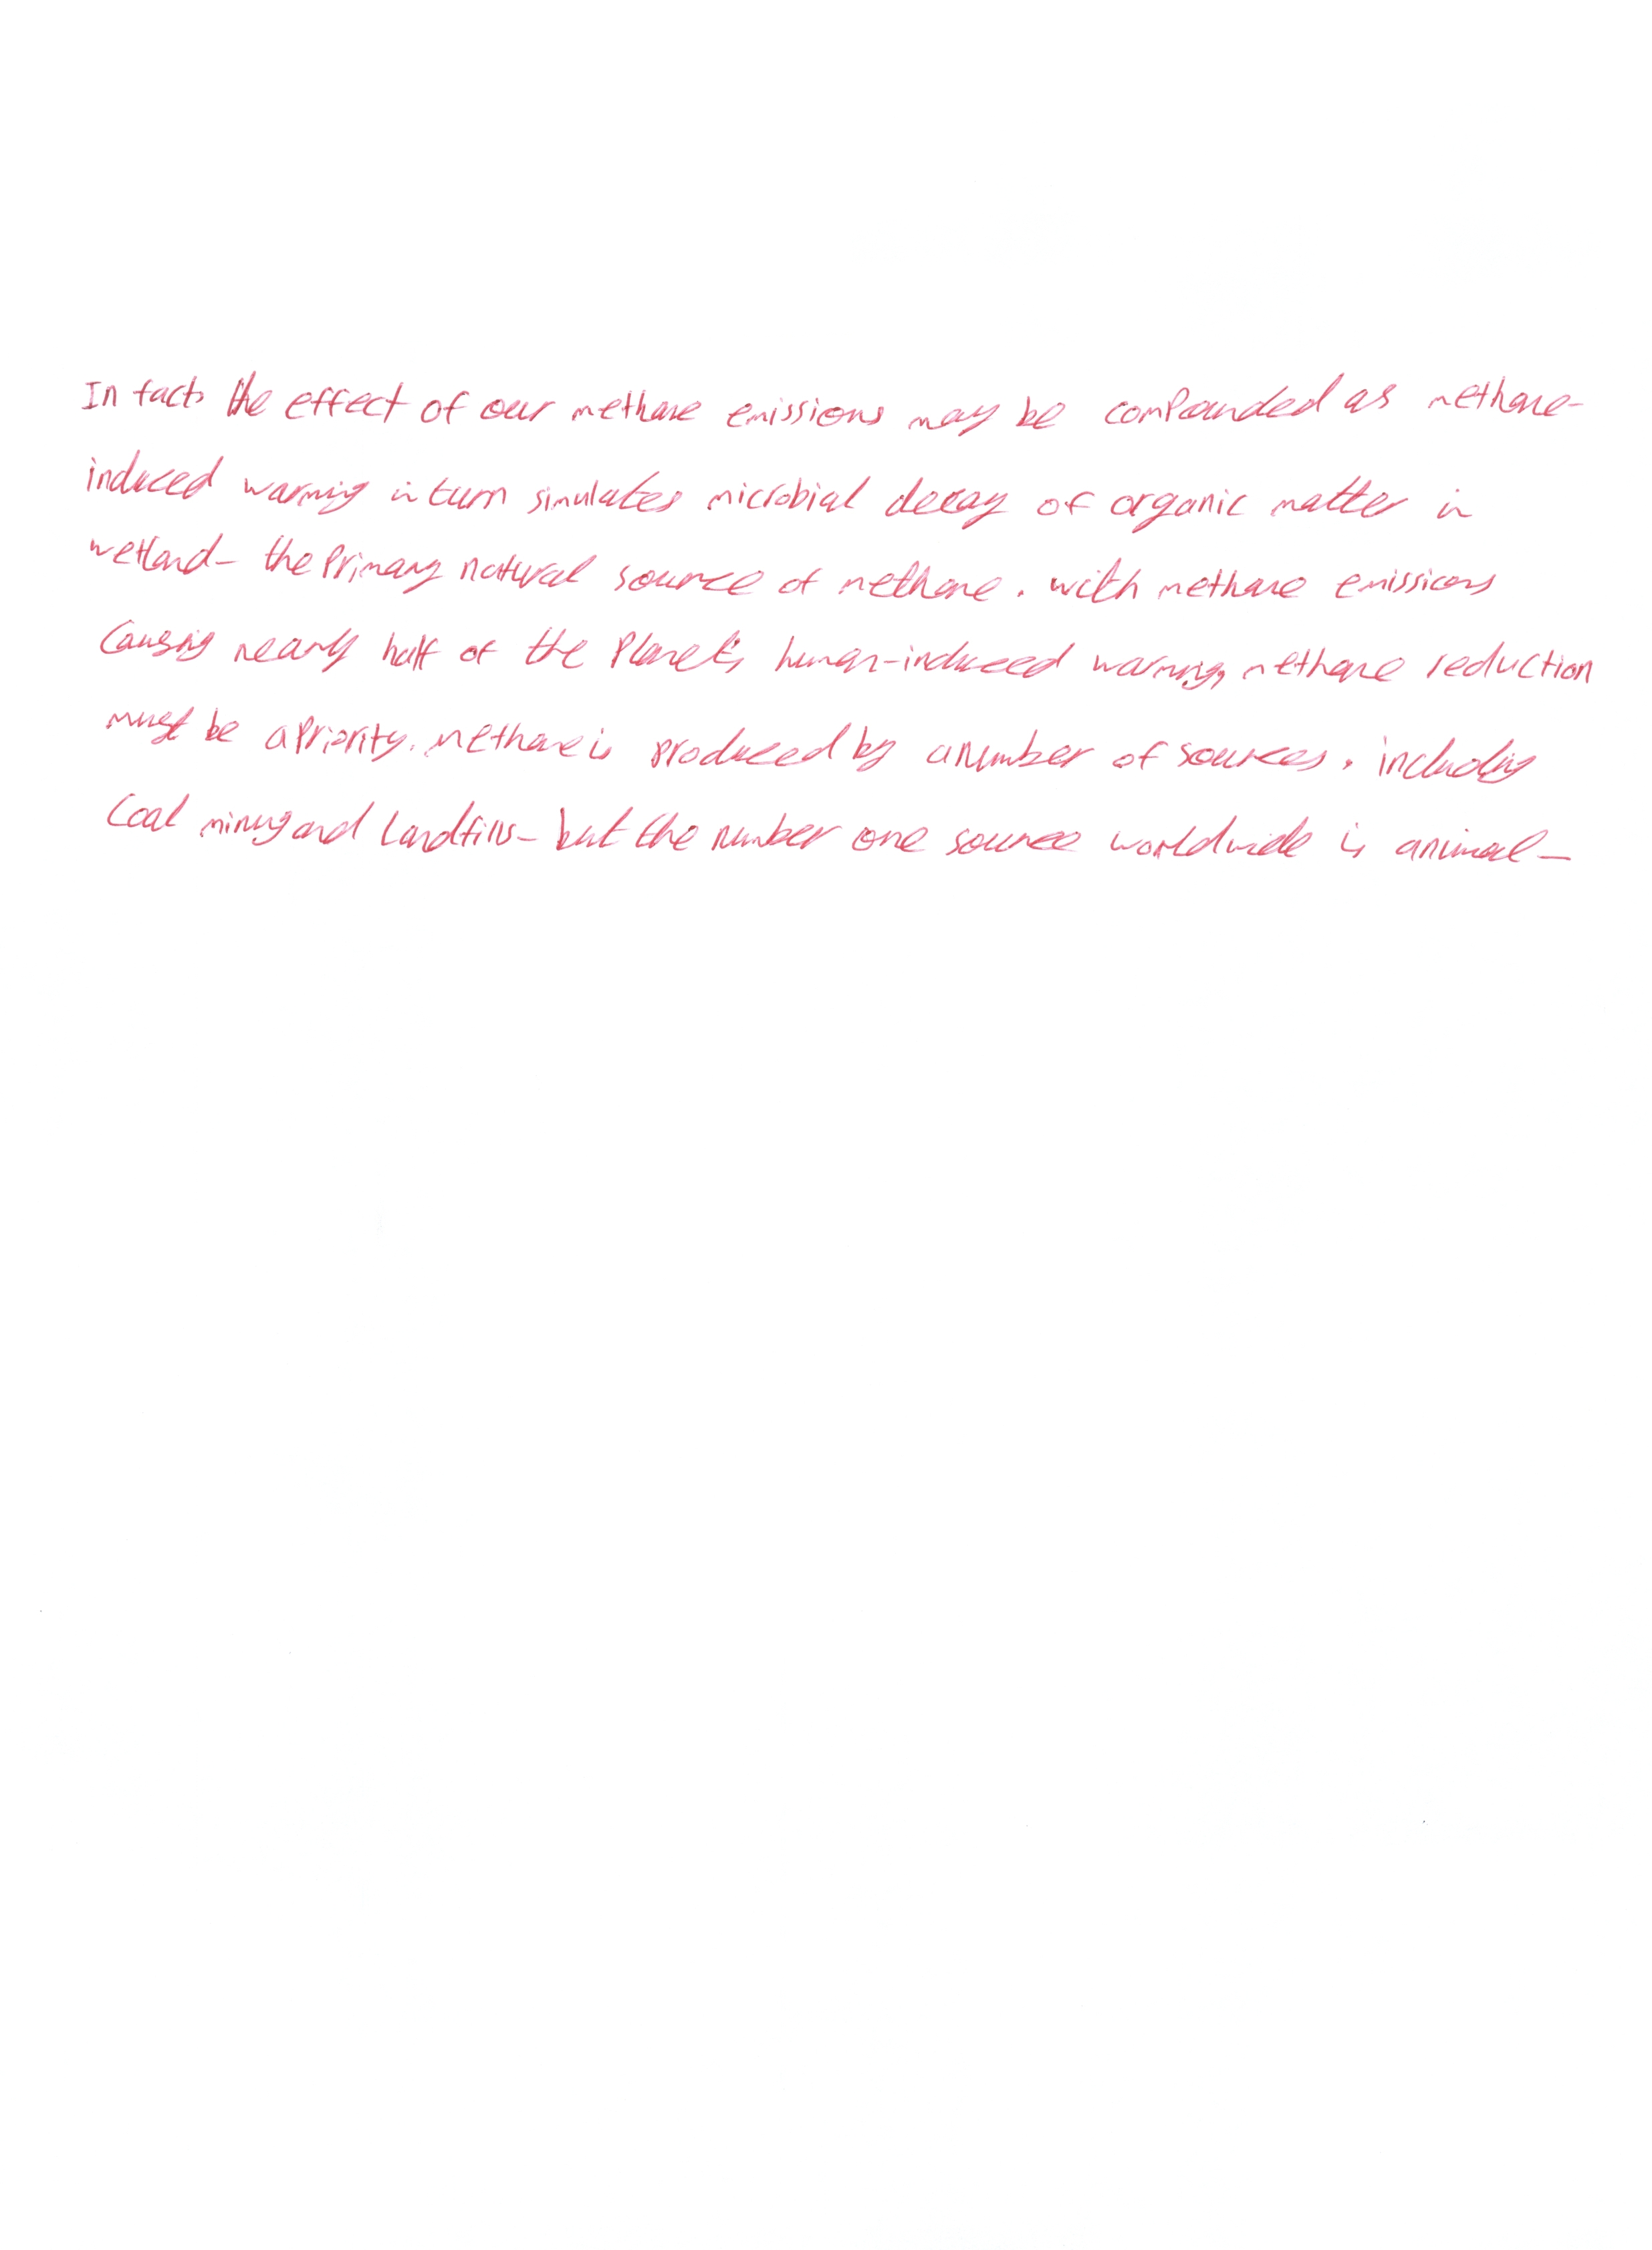 In fact, the effect of our methane emissions may be compounded as methane-
induced warming in turn simulates microbial decay of organic matter in
wetland - the primary natural source of methane. with methane emissions
causing nearly half of the planet's human-induced warming, methane reduction
must be a priority. methane is produced by a number of sources, including
coal mining and landfills - but the number one source worldwide is animal -